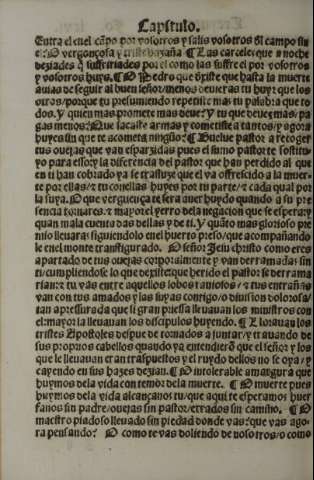 Capítulo.
Entra el en el cãpo por vosotros y salis vosotros dl campo sin
el: O vergonçosa y triste hazaña ¶ Las carceles que a noche
deziades q̃ suffririades por el como las suffre el por vosotros
y vosotros huys. ¶ O Pedro que dixiste que hasta la muerte
auias de seguir al buen señor/menos deueras tu huyr que los
otros/porque tu presumiendo repeniste mas tu palabra que to
dos. Y quien mas promete mas deue? Y tu que deues mas/pa
gas menos: Que sacaste armas y cometiste a tantos/y agora
huyes sin que te acometa ningũo: ¶ Buelue pastor a recoger
tus ouejas que van esparzidas pues el sumo pastor te sostitu
yo para esso: y la diferencia del pastor que han perdido al que
en ti han cobrado ya se trasluze que el va offrescido a la muer
te por ellas/& tu con ellas huyes por tu parte/& cada qual por
la suya. O que verguença te sera auer huydo quando a su pre
sencia tornares. & mayor el yerro dela negacion que se espera: y
quan mala cuenta das dellas y de ti. Y quãto mas glorioso pre
mio lleuaras siguiendolo en el huerto preso/que acompañando
le en el monte transfigurado. O señor Jesu christo como eres
apartado de tus ouejas corporalmente y van derramadas sin
ti/cumpliendose lo que dexiste: que herido el pastor se derrama
rian: & tu vas entre aquellos lobos rauiosos/& tus entrañas
van con tus amados y las suyas contigo/o diuision dolorosa/
tan apressurada que si gran priessa lleuauan los ministros con
el: mayor la lleuauan los discipulos huyendo. ¶ Llorauan los
tristes Apostoles despues de tornados a juntar/y trauando de
sus proprios cabellos quando ya entendierõ que el señor y los
que le lleuauan eran traspuestos y el ruydo dellos no se oya/y
cayendo en sus hazes dezian. ¶ O intolerable amargura que
huymos dela vida con temor dela muerte. ¶ O muerte pues
huymos dela vida alcançanos tu/que aqui te esperamos huer
fanos sin padre/ouejas sin pastor/errados sin camino. ¶ O
maestro piadoso lleuado sin piedad donde vas: que vas ago
ra pensando? O como te vas doliendo de nosotros/o como